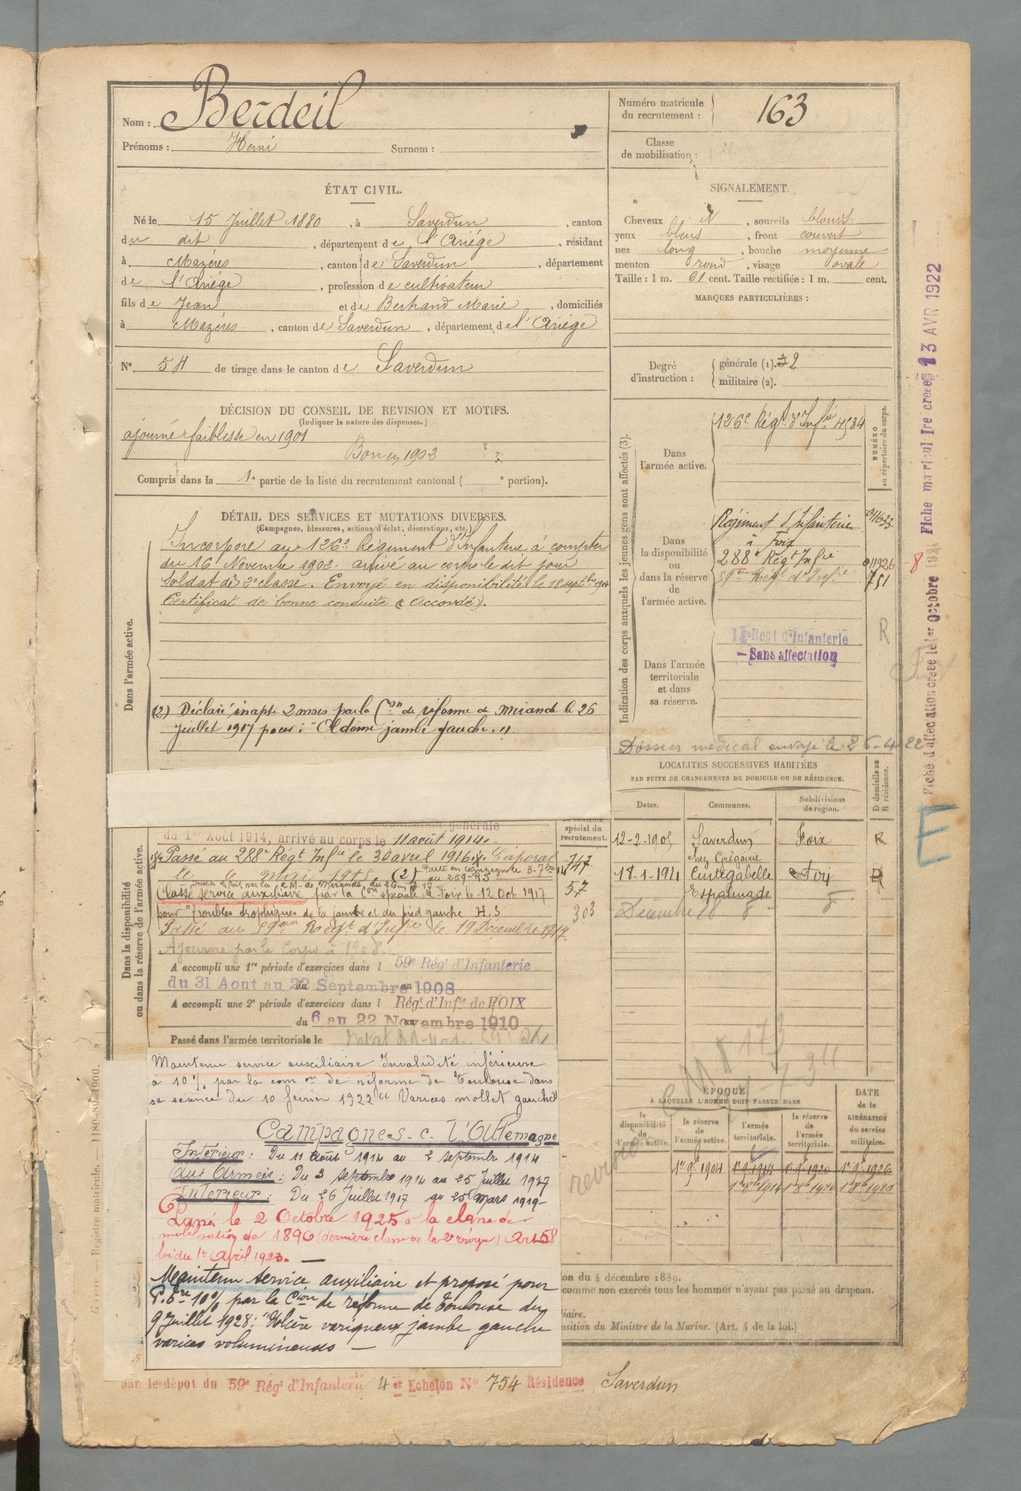 Nom : Berdeil
Prénoms : Henri Surnom :
Numéro matricule
du recrutement : 163
Classe
de mobilisation :
ÉTAT CIVIL.
Né le 15 Juillet 1880, à Saverdun, canton
du dit, département de l'Ariége, résidant
à Mazéres, canton de Saverdun, département
de l'Ariége, profession de cultivateur
fils de Jean et de Bertrand Marie, domiciliés
à Mazéres, canton de Saverdun, département de l'Ariége
N° 54 de tirage dans le canton de Saverdun
SIGNALEMENT.
Cheveux N, sourcils blonds
yeux bleus, front couvert
nez long, bouche moyenne
menton rond, visage ovale
Taille : 1 m. 61 cent. Taille rectifiée : 1 m. cent.
MARQUES PARTICULIÈRES :
Degré
d'instruction :
générale (1). 2
militaire (2).
DÉCISION DU CONSEIL DE REVISION ET MOTIFS.
(Indiquer la nature des dispenses.)
ajourné faiblesse en 1901
Bon en 1902
Compris dans la 1e partie de la liste du recrutement cantonal ( e portion).
DÉTAIL DES SERVICES ET MUTATIONS DIVERSES.
(Campagnes, blessures, actions d'éclat, décorations, etc.)
Dans l'armée active.
Incorporé au 126e Régiment d'Infanterie à compter
du 16 Novembre 1902. arrivé au corps le dit jour
Soldat de 2e classe. Envoyé en disponibilité le 18 septbre 1904
Certificat de bonne conduite "Accordé".
(2) Déclaré inapte 2 mois par la Con de réforme de Mirande le 26
Juillet 1917 pour : "Œdème jambe gauche."
Indication des corps auxquels les jeunes gens sont affectés (3).
NUMÉRO
au répertoire du corps.
Dans
l'armée active.
126e Régt d'Infie 4534
Dans
la disponibilité
ou
dans la réserve
de
l'armée active.
Régiment d'Infanterie
à Foix
288e Régt Infie
59eme Regt d'Infie 751
Dans l'armée
territoriale
et dans
sa réserve.
Régt d'Infanterie
- Sans affectation
R
Dossier médical envoyé le 26-4-22
LOCALITÉS SUCCESSIVES HABITÉES
PAR SUITE DE CHANGEMENTS DE DOMICILE OU DE RÉSIDENCE.
Dates. Communes. Subdivisions
de région. D domicile ou
R résidence.
12-2-1905 Saverdun Foix R
chez Grégoire
18-1-1924 Cintegabelle
Espalnade
E
Dans la disponibilité
ou dans la réserve de l'armée active.
du 1er Août 1914, arrivé au corps le 11 août 1914.
spécial du
recrutement.
Passé au 288e Régt Infie le 30 avril 1916. Caporal 747
Classé service auxiliaire par la Con spéciale de Foix le 12 Oct 1917 57
pour Troubles trophiques de la jambe et du pied gauche H.S 303
Passé au 59eme Regt d'Infie le 19 Décembre 1917
Ajourné par le Corps à 1908.
A accompli une 1re période d'exercices dans l 59e Régt d'Infanterie
du 31 Aout au 22 Septembre 1908
A accompli une 2e période d'exercices dans l Régt d'Infie de FOIX
du 6 au 22 Novembre 1910
Passé dans l'armée territoriale le
Maintenu service auxiliaire Invalidité inférieure
à 10% par la com on de réforme de Toulouse dans
sa séance du 10 février 1922 "Varices mollet gauche
Campagnes c. l'Allemagne
Intérieur : Du 11 août 1914 au 2 septembre 1914
Aux Armées : Du 3 septembre 1914 au 25 juillet 1917
Intérieur : Du 26 Juillet 1917 au 25 mars 1919
Passé le 2 Octobre 1925 à la classe de
mobilisation de 1896 (dernière classe de la 2e réserve) Art 58
loi du 1er Avril 1923.
Maintenu service auxiliaire et proposé pour
P. 10% par la Cion de réforme de Toulouse du
9 Juillet 1928 : "Ulcère variqueux jambe gauche
varices volumineuses -
ÉPOQUE
À LAQUELLE L'HOMME DOIT PASSER DANS
DATE
de la
LIBÉRATION
du service
militaire.
la
disponibilité
de
l'armée active.
la réserve
de
l'armée active.
l'armée
territoriale.
la réserve
de
l'armée
territoriale.
1er 9bre 1904 1er 9 1914 1er 9 1920 1er 9 1926
1er 8bre 1914 1er 8 1920 1er 8bre 1926
ion du 4 décembre 1889.
comme non exercés tous les hommes n'ayant pas passé au drapeau.
iaire.
osition du Ministre de la Marine. (Art. 4 de la loi.)
par le dépôt du 59e Régt d'Infanterie 4 er Echelon N° 754 Résidence Saverdun